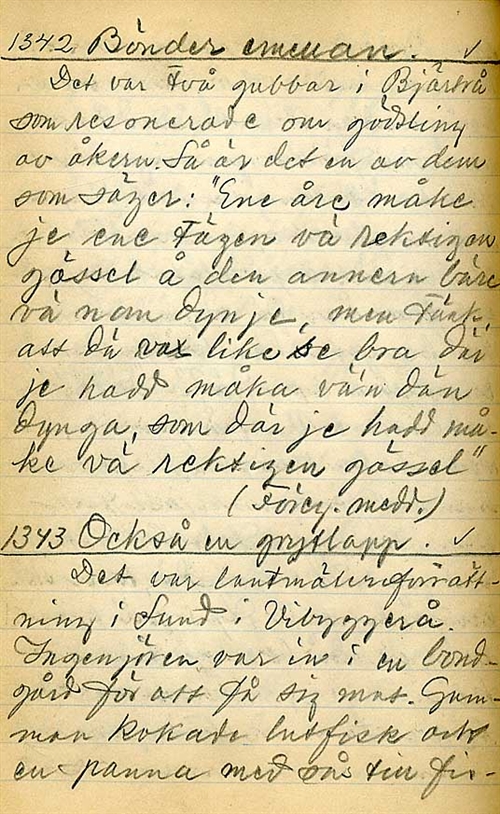 1342 Bönder emellan. ✓
Det var två gubbar i Bjärtrå
som resonerade om gödsling
av åkern. Så är det en av dem
som säger: "Ene åre måke
je ene tägen vä rektigen
gössel å den annern bare
vä nan dynje, men tänk,
att dä var like se bra där
je hadd måka vä'n dän
dynga, som där je hadd må-
ke vä rektigen gössel"
(Föreg. medd.)
1343 Också en grytlapp. ✓
Det var lantmäteriförrätt-
ning i Sund i Vibyggerå.
Ingenjören var in i en bond-
gård för att få sig mat. Gum-
man kokade lutfisk och
en panna med sås till fis-